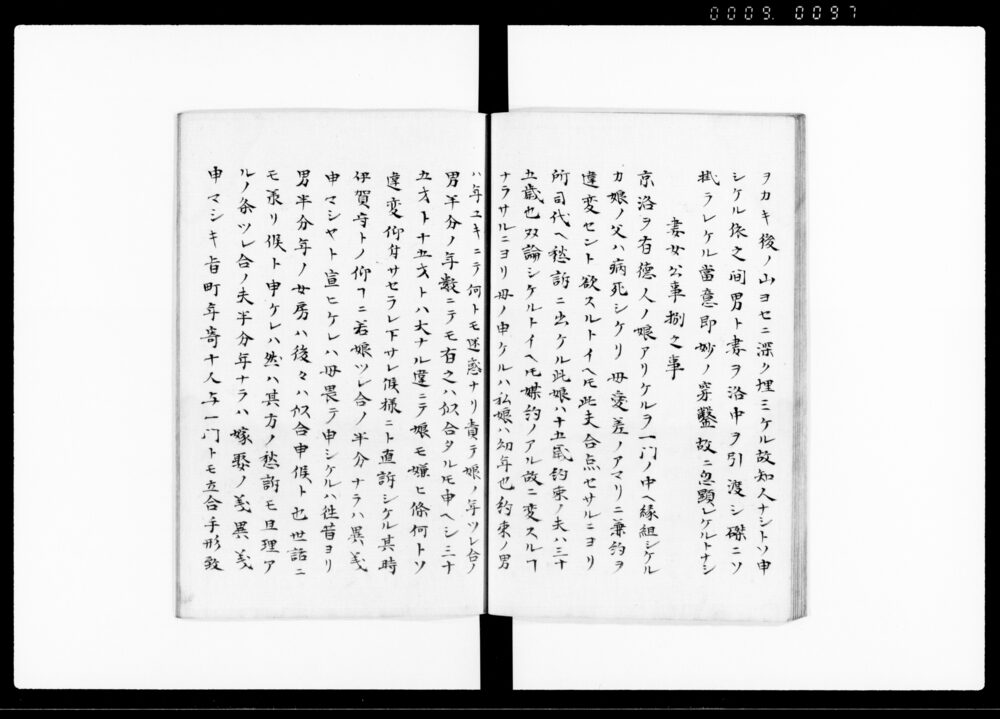 0009. 0097
ヲカキ後ノ山ヨセニ深ク埋ミケル故知人ナシトソ申
シケル依之間男ト妻ヲ洛中ヲ引渡シ磔ニソ
掛ラレケル當意即妙ノ穿鑿故ニ忽顕レケルトナシ
妻女公事捌之事
京洛ヲ有德人ノ娘アリケルヲ一門ノ中ヘ縁組シケル
カ娘ノ父ハ病死シケリ母愛差ノアマリニ兼約ヲ
違変セント欲スルトイヘ𪜈此夫合点セサルニヨリ
所司代ヘ愁訴ニ出ケル此娘ハ十五歳約束ノ夫ハ三十
五歳也双論シケルトイヘ𪜈媒約ノアル故ニ変スルヿ
ナラサルニヨリ母ノ申ケルハ私娘ハ幼年也約束ノ男
ハ年ユキニテ何トモ迷惑ナリ責テ娘ノ年ツレ合ノ
男半分ノ年数ニテモ有之ハ似合タルモ申ヘシ三十
五才ト十五才トハ大ナル違ニテ娘モ嫌ヒ候何トソ
違変仰付サセラレ下サレ候様ニト直訴シケル其時
伊賀守トノ仰ヿニ若娘ツレ合ノ半分ナラハ異義
申マシヤト宣ヒケレハ母畏テ申シケルハ往昔ヨリ
男半分年ノ女房ハ後々ハ似合申候ト也世話ニ
モ承リ候ト申ケレハ然ハ其方ノ愁訴モ且理ア
ルノ条ツレ合ノ夫半分年ナラハ嫁娶ノ義異義
申マシキ旨町年寄十人与一門トモ立合手形致